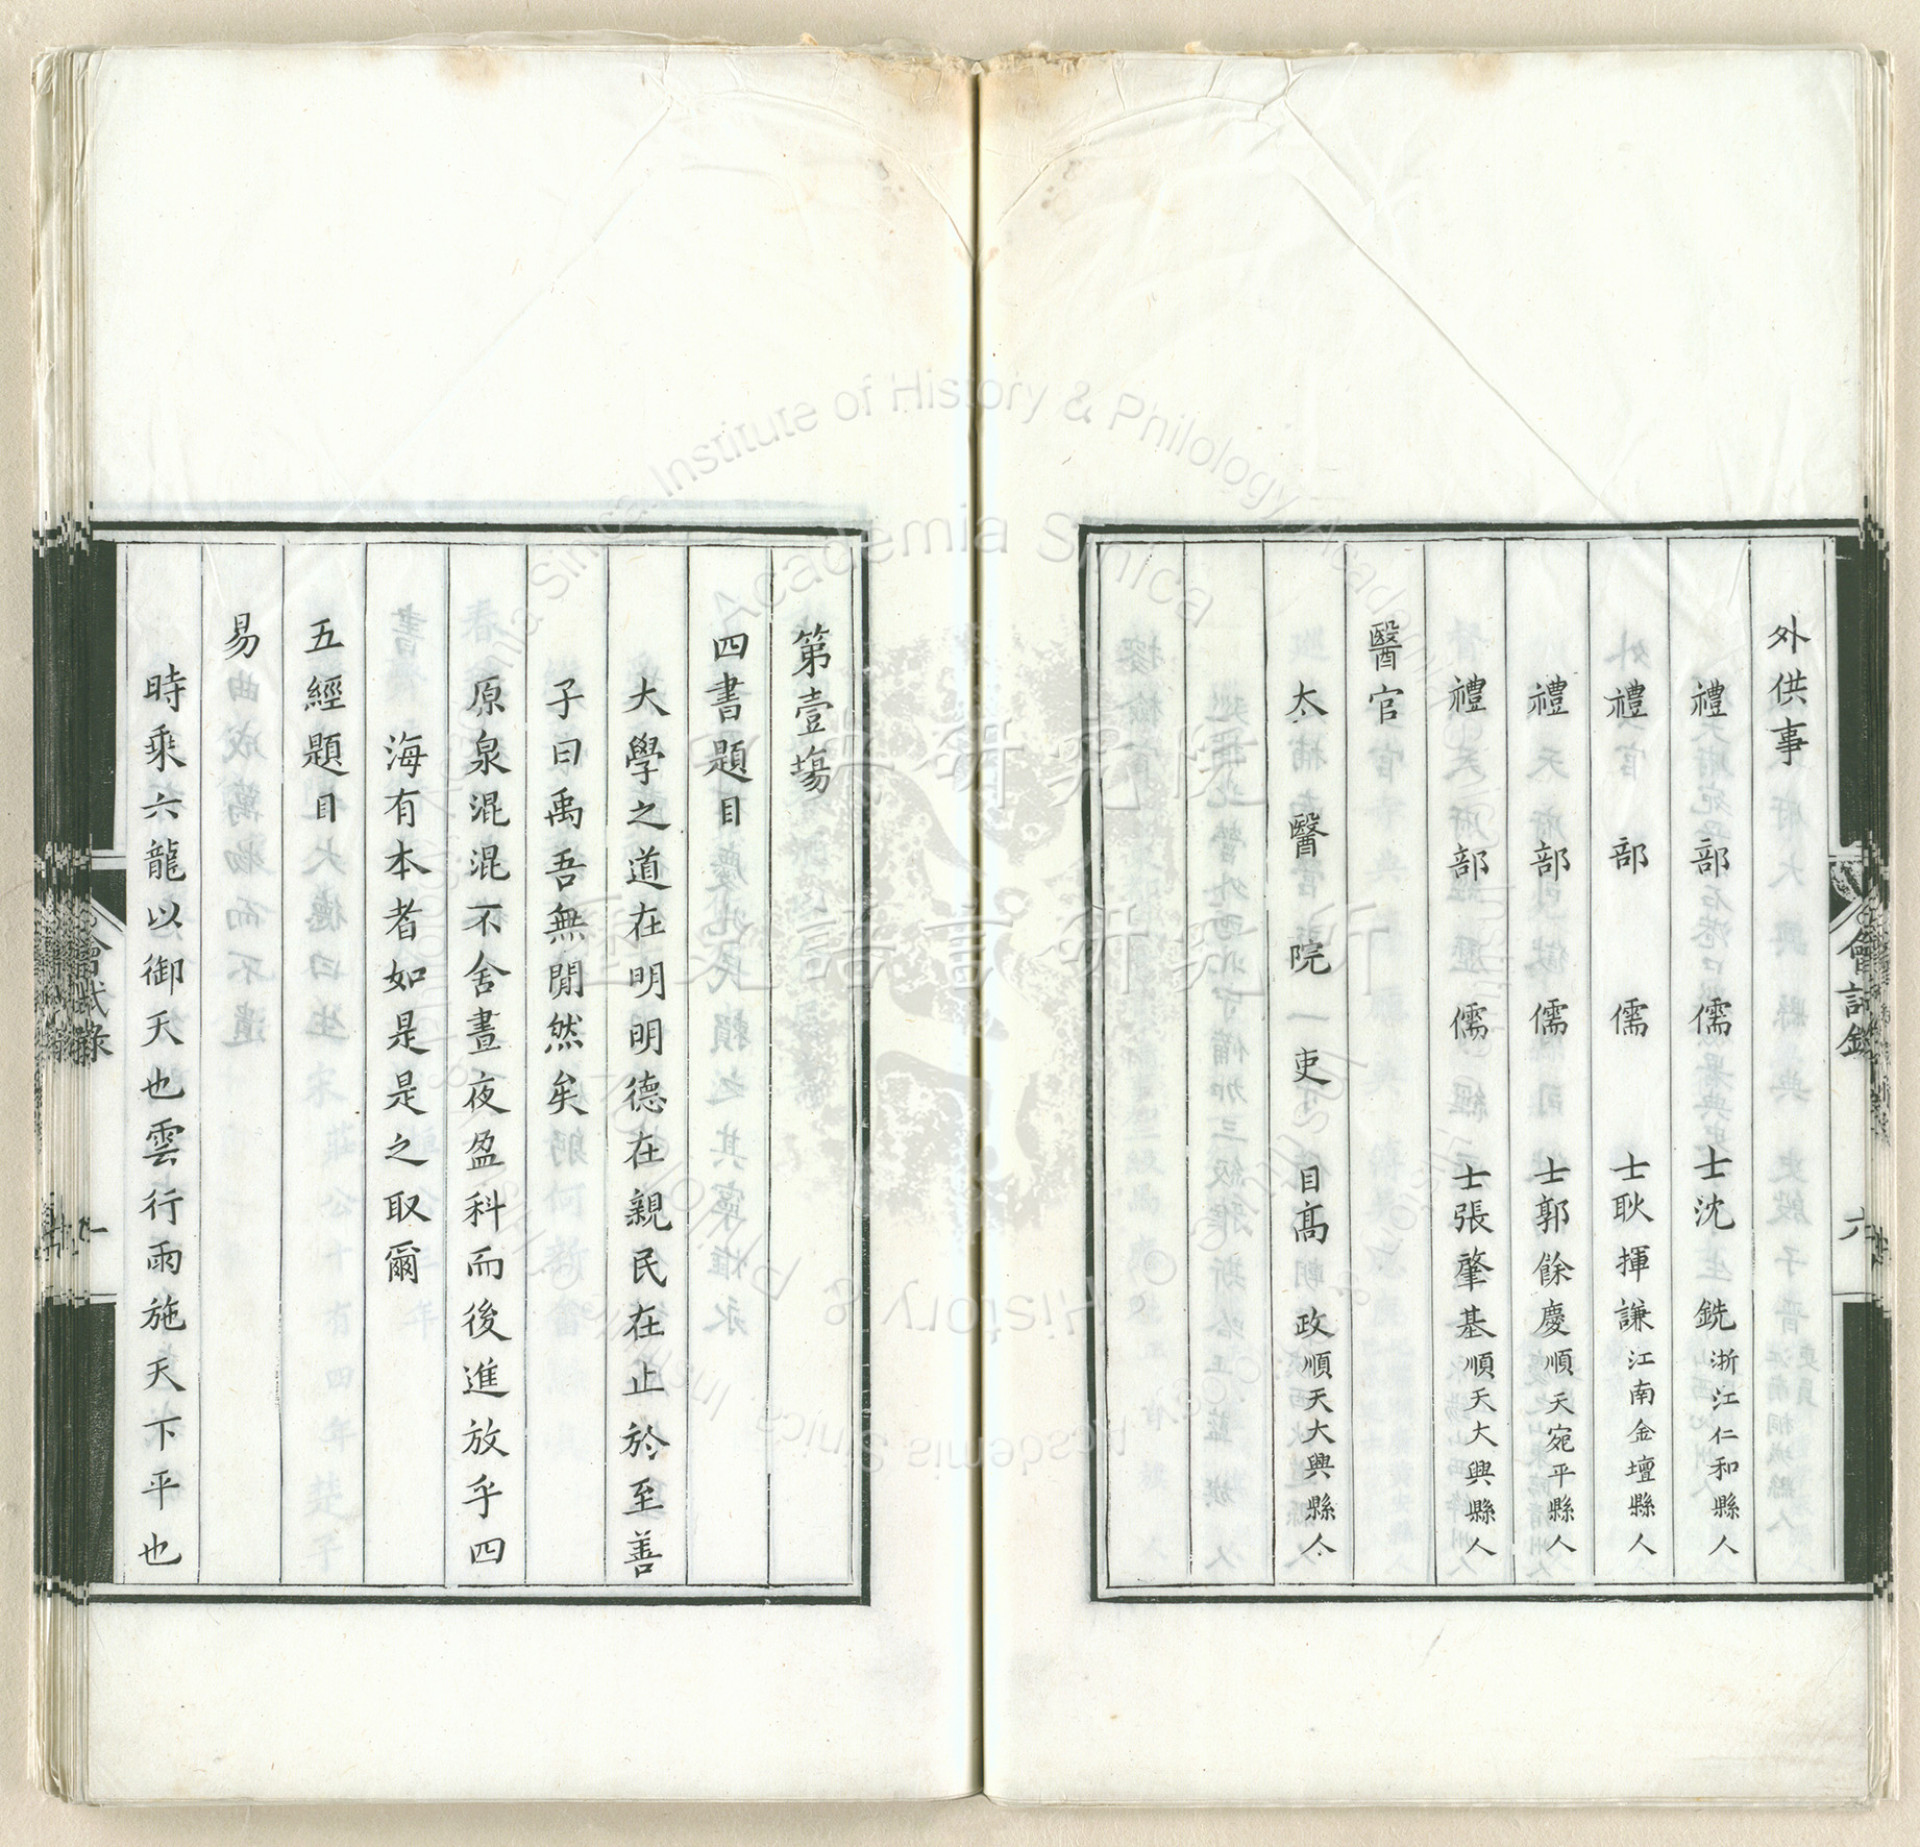 外供事
禮部儒士沈生銑浙江仁和縣人
禮部儒士耿揮謙江南金壇縣人
禮部儒士郭餘慶順天宛平縣人
禮部儒士張肇基順天大興縣人
醫官
太醫院吏目高朝政順天大興縣人
會試錄
六
第壹塲
四書題目
大學之道在明明德在親民在止於至善
子曰禹吾無閒然矣
原泉混混不舍晝夜盈科而後進放乎四
海有本者如是是之取爾
五經題目
易
時乘六龍以御天也雲行雨施天下平也
會試錄
Institute of History & Philology Academia Sinica